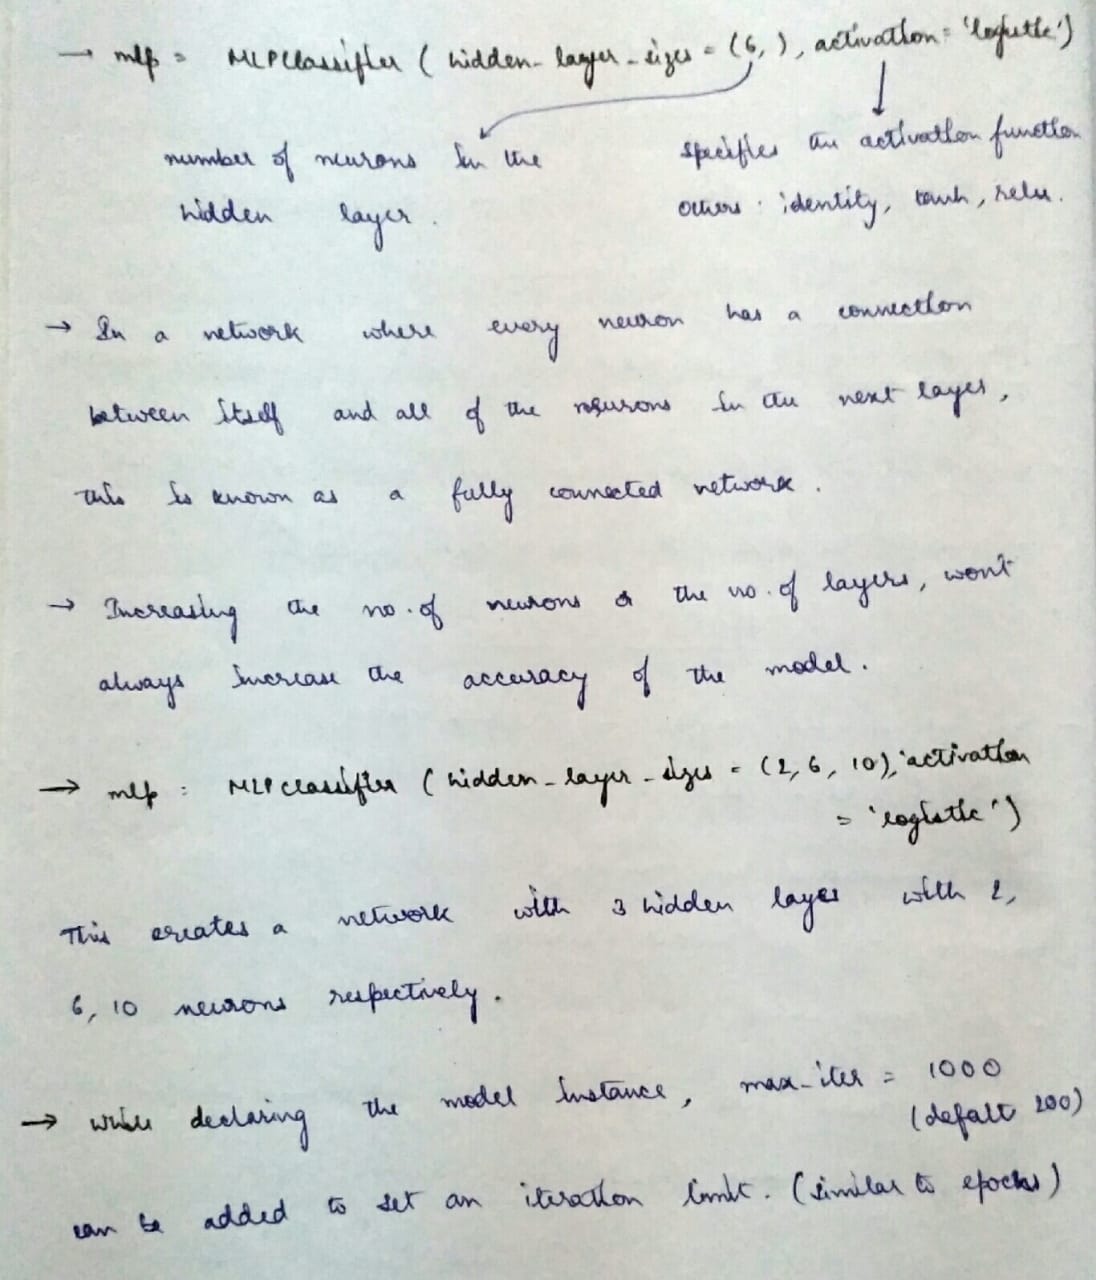 → mlp = MLPClassifier ( hidden-layer-sizes = (6, ), activation = 'logistic')
number of neurons in the
hidden layer.
specifies an activation function
others : identity, tanh, relu.
→ In a network where every neuron has a connection
between itself and all of the neurons in the next layer,
this is known as a fully connected network.
→ Increasing the no. of neurons or the no. of layers, won't
always increase the accuracy of the model.
→ mlp = MLPClassifier ( hidden-layer-sizes = (2, 6, 10), activation
= 'logistic')
This creates a network with 3 hidden layer with 2,
6, 10 neurons respectively.
→ while declaring the model instance, max-iter = 1000
(defalt 200)
can be added to set an iteration limit. (similar to epochs)